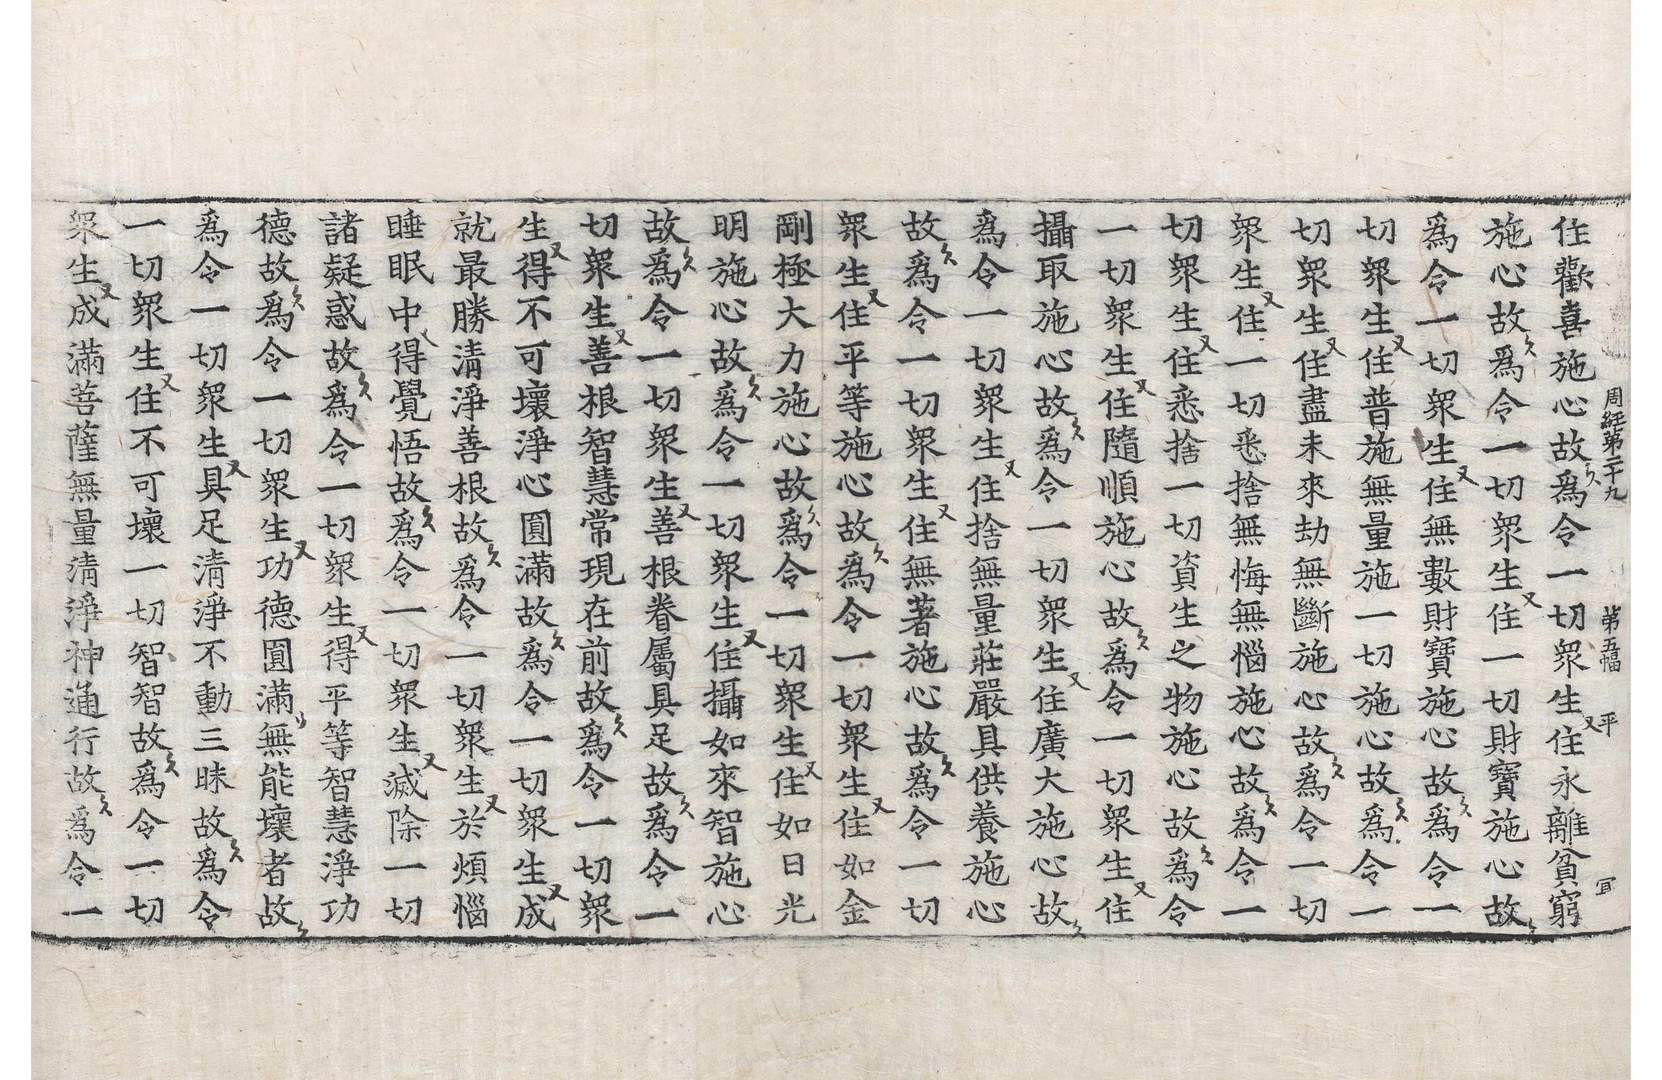 周經第二十九 第五幅 平
住歡喜施心故爲令一切衆生住永離貧窮
施心故爲令一切衆生住一切財寶施心故
爲令一切衆生住無數財寶施心故爲令一
切衆生住普施無量施一切施心故爲令一
切衆生住盡未來劫無斷施心故爲令一切
衆生住一切悉捨無悔無惱施心故爲令一
切衆生住悉捨一切資生之物施心故爲令
一切衆生住隨順施心故爲令一切衆生住
攝取施心故爲令一切衆生住廣大施心故
爲令一切衆生住捨無量莊嚴具供養施心
故爲令一切衆生住無著施心故爲令一切
衆生住平等施心故爲令一切衆生住如金
剛極大力施心故爲令一切衆生住如日光
明施心故爲令一切衆生住攝如來智施心
故爲令一切衆生善根眷屬具足故爲令一
切衆生善根智慧常現在前故爲令一切衆
生得不可壞淨心圓滿故爲令一切衆生成
就最勝清淨善根故爲令一切衆生於煩惱
睡眠中得覺悟故爲令一切衆生滅除一切
諸疑惑故爲令一切衆生得平等智慧淨功
德故爲令一切衆生功德圓滿無能壞者故
爲令一切衆生具足清淨不動三昧故爲令
一切衆生住不可壞一切智智故爲令一切
衆生成滿菩薩無量清淨神通行故爲令一